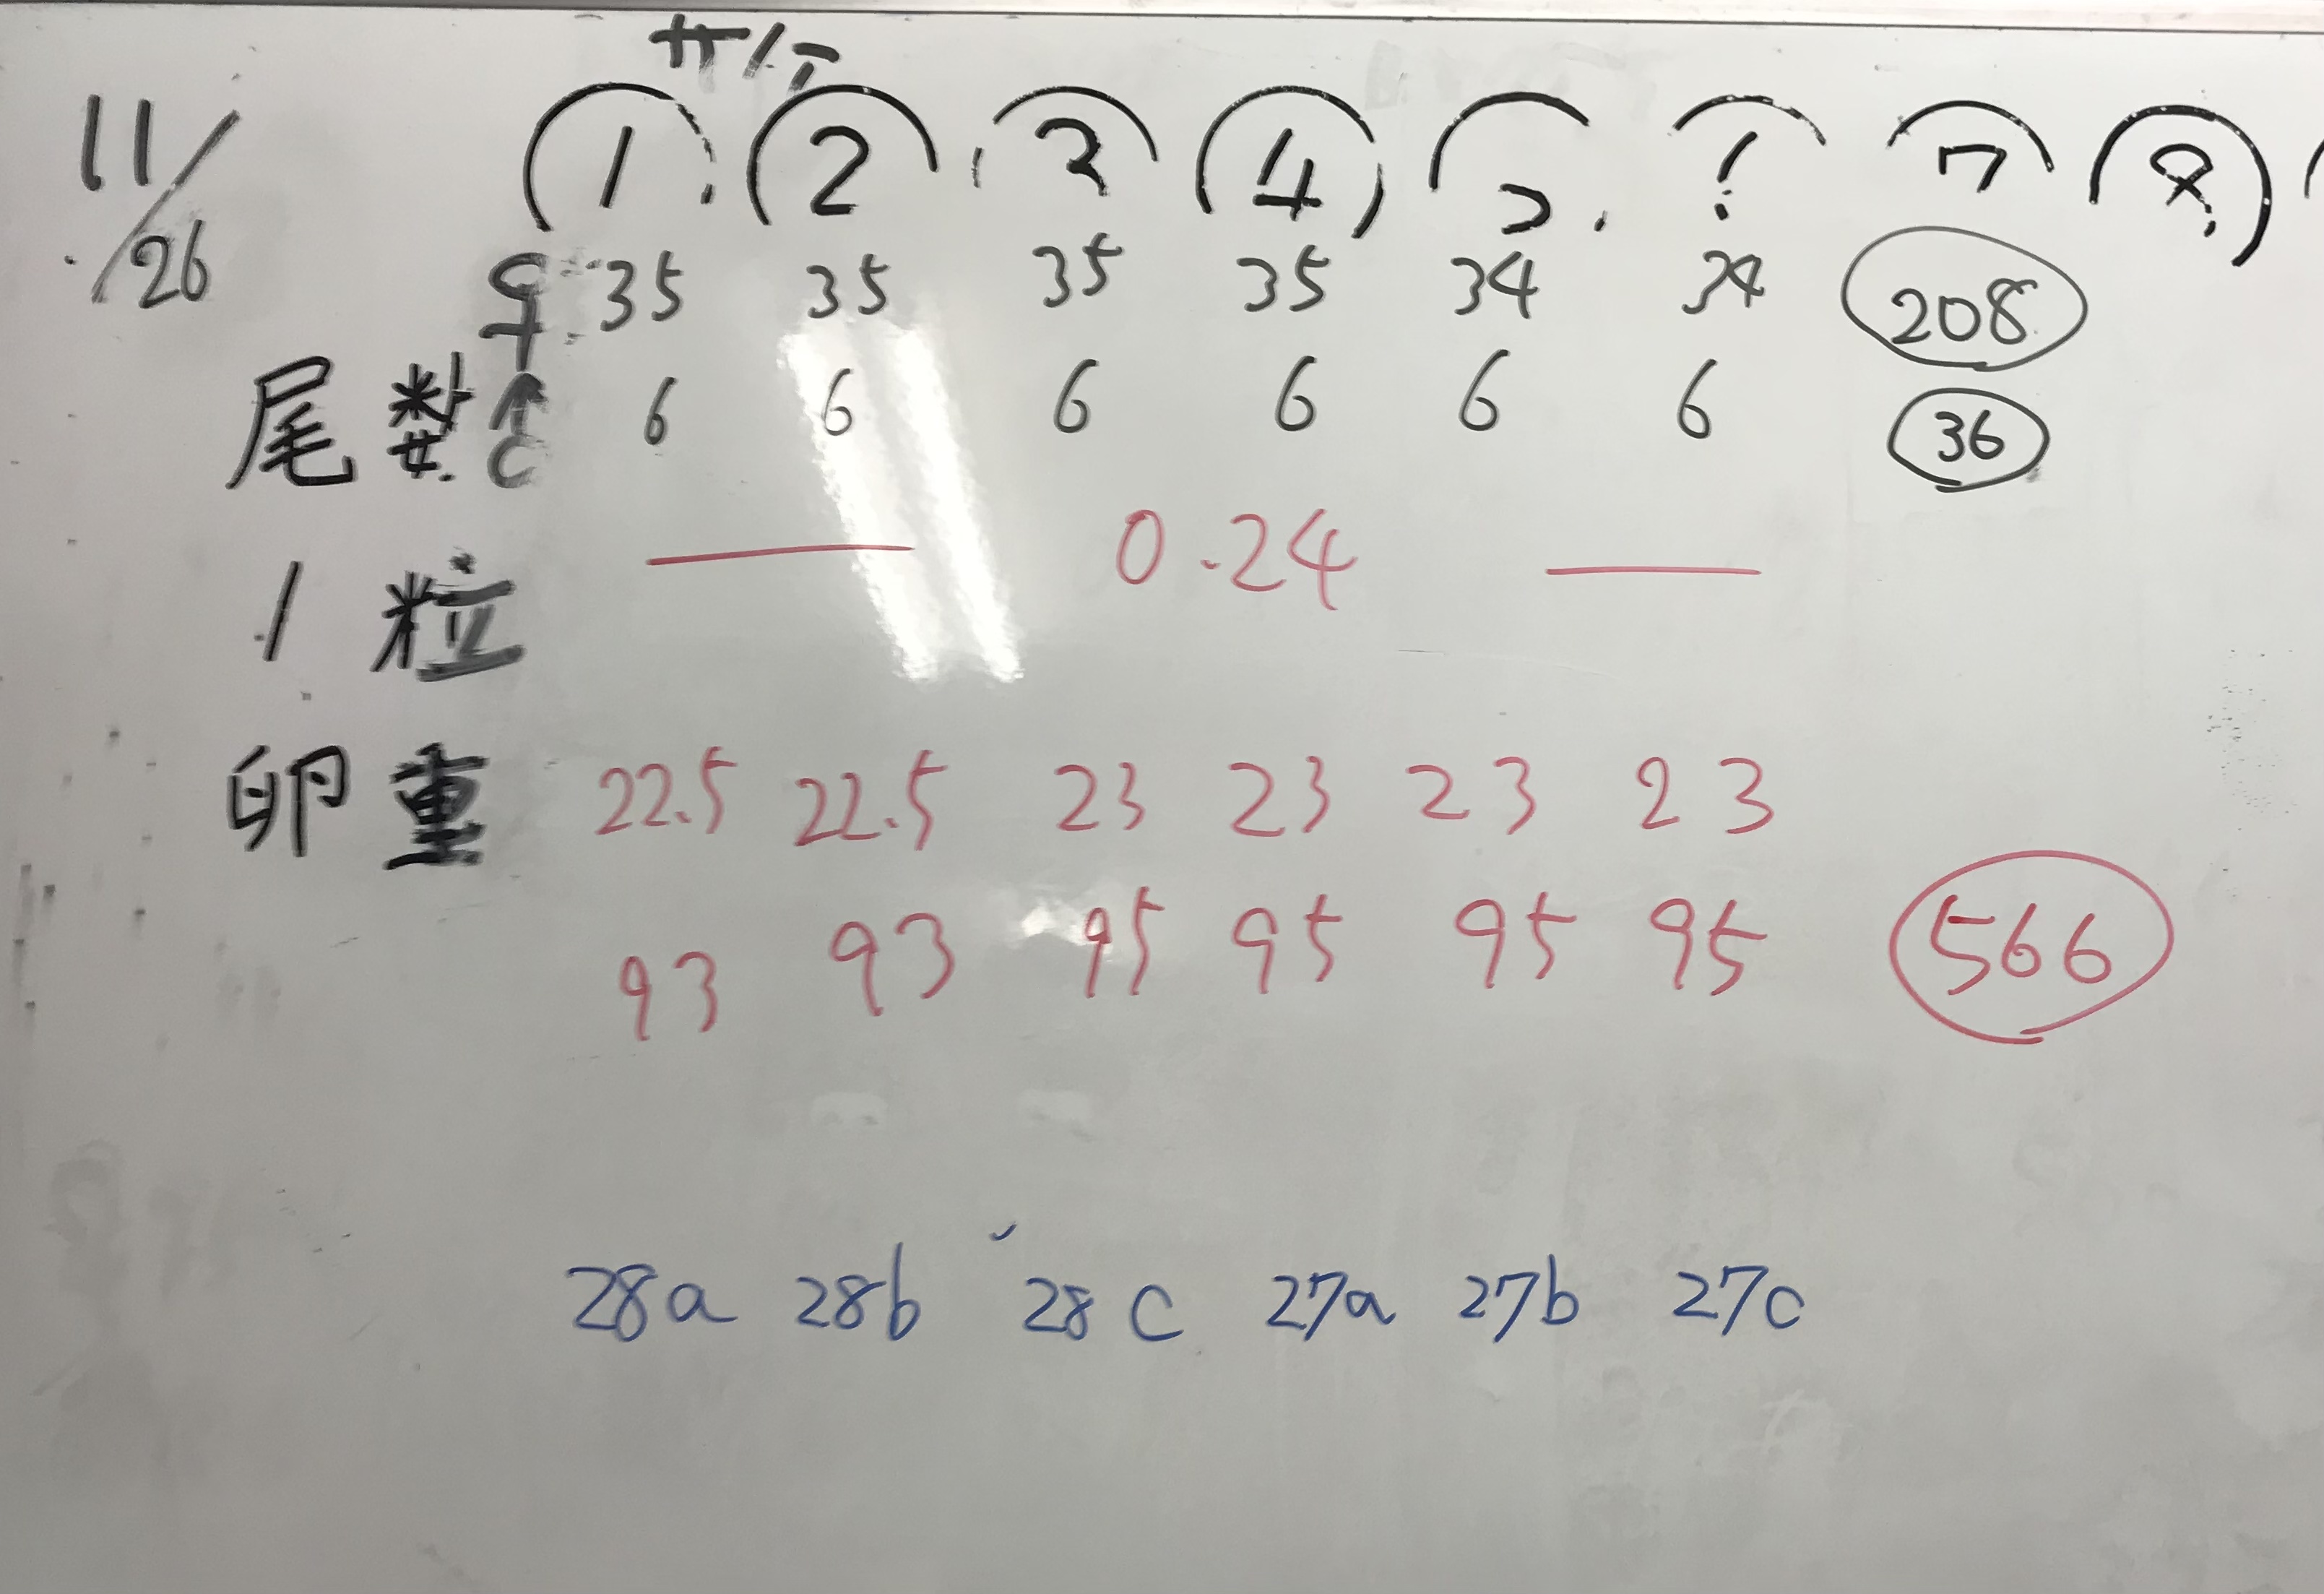 サケ
11/26 ① ② ③ ④ 7 8
♀ 35 35 35 35 34 34 208
尾数 ♂ 6 6 6 6 6 6 36
1粒 — 0.24 —
卵重 22.5 22.5 23 23 23 23
93 93 95 95 95 95 566
28a 28b 28c 27a 27b 27c